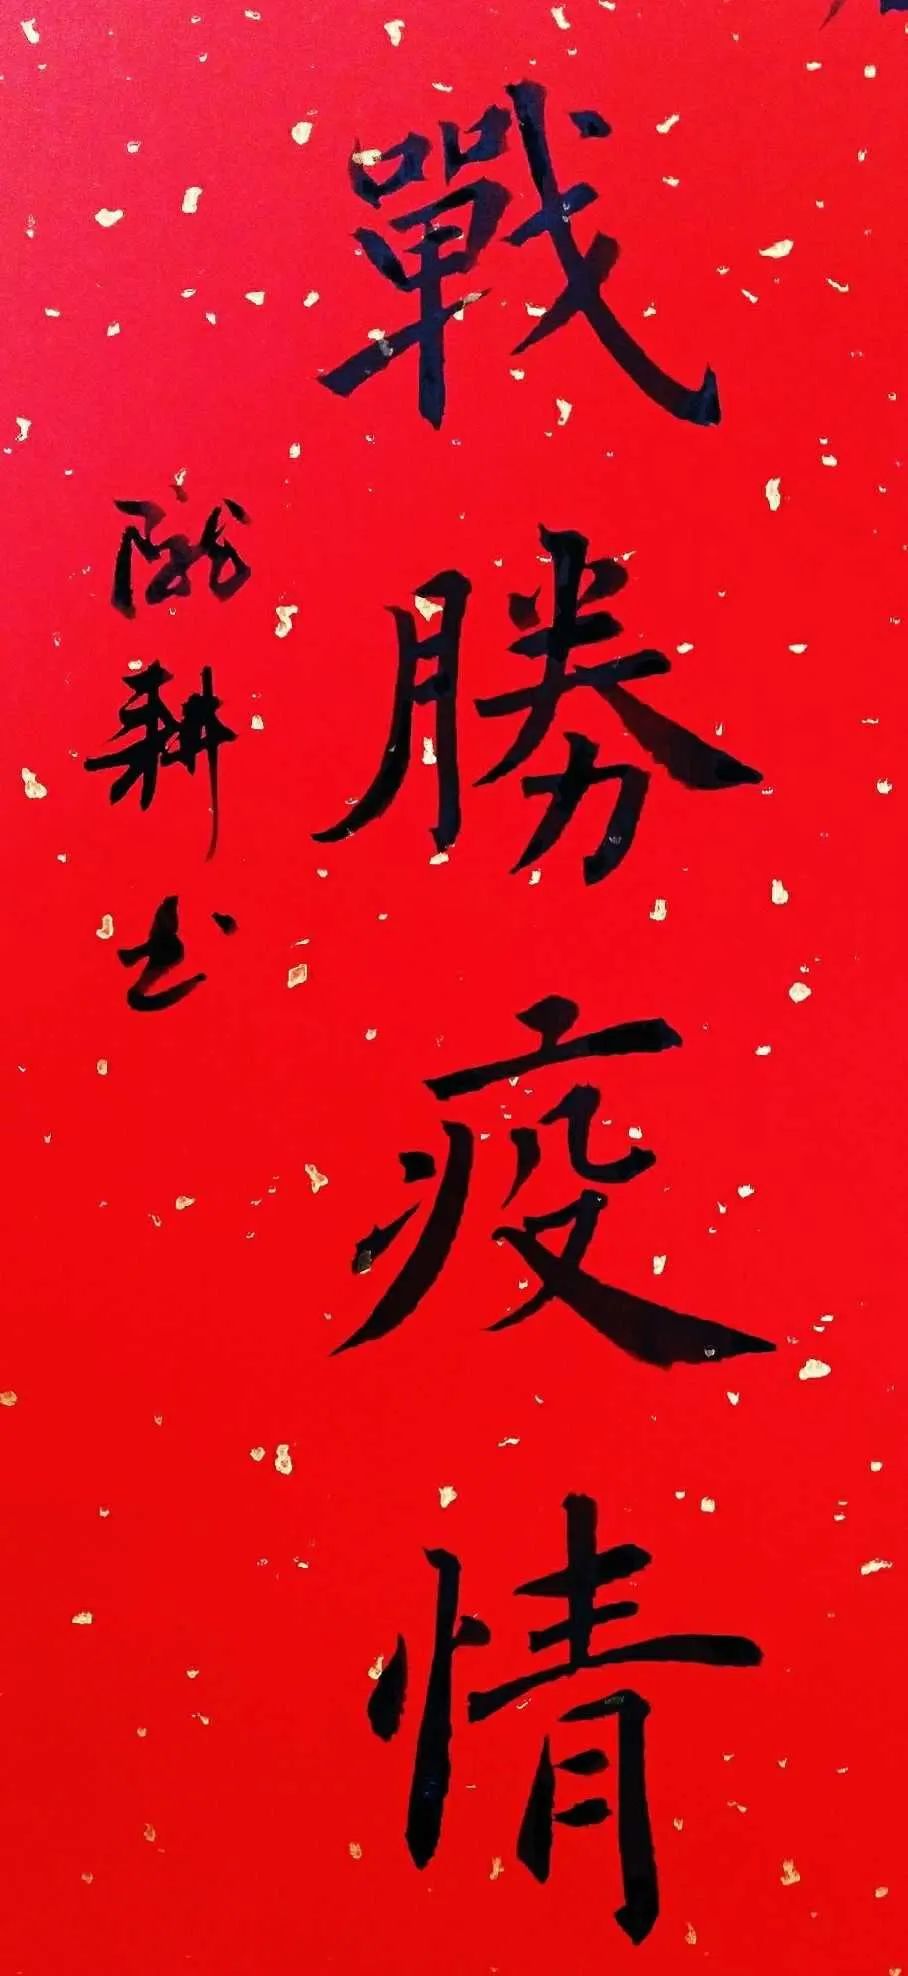 戰勝疫情
隴耕书